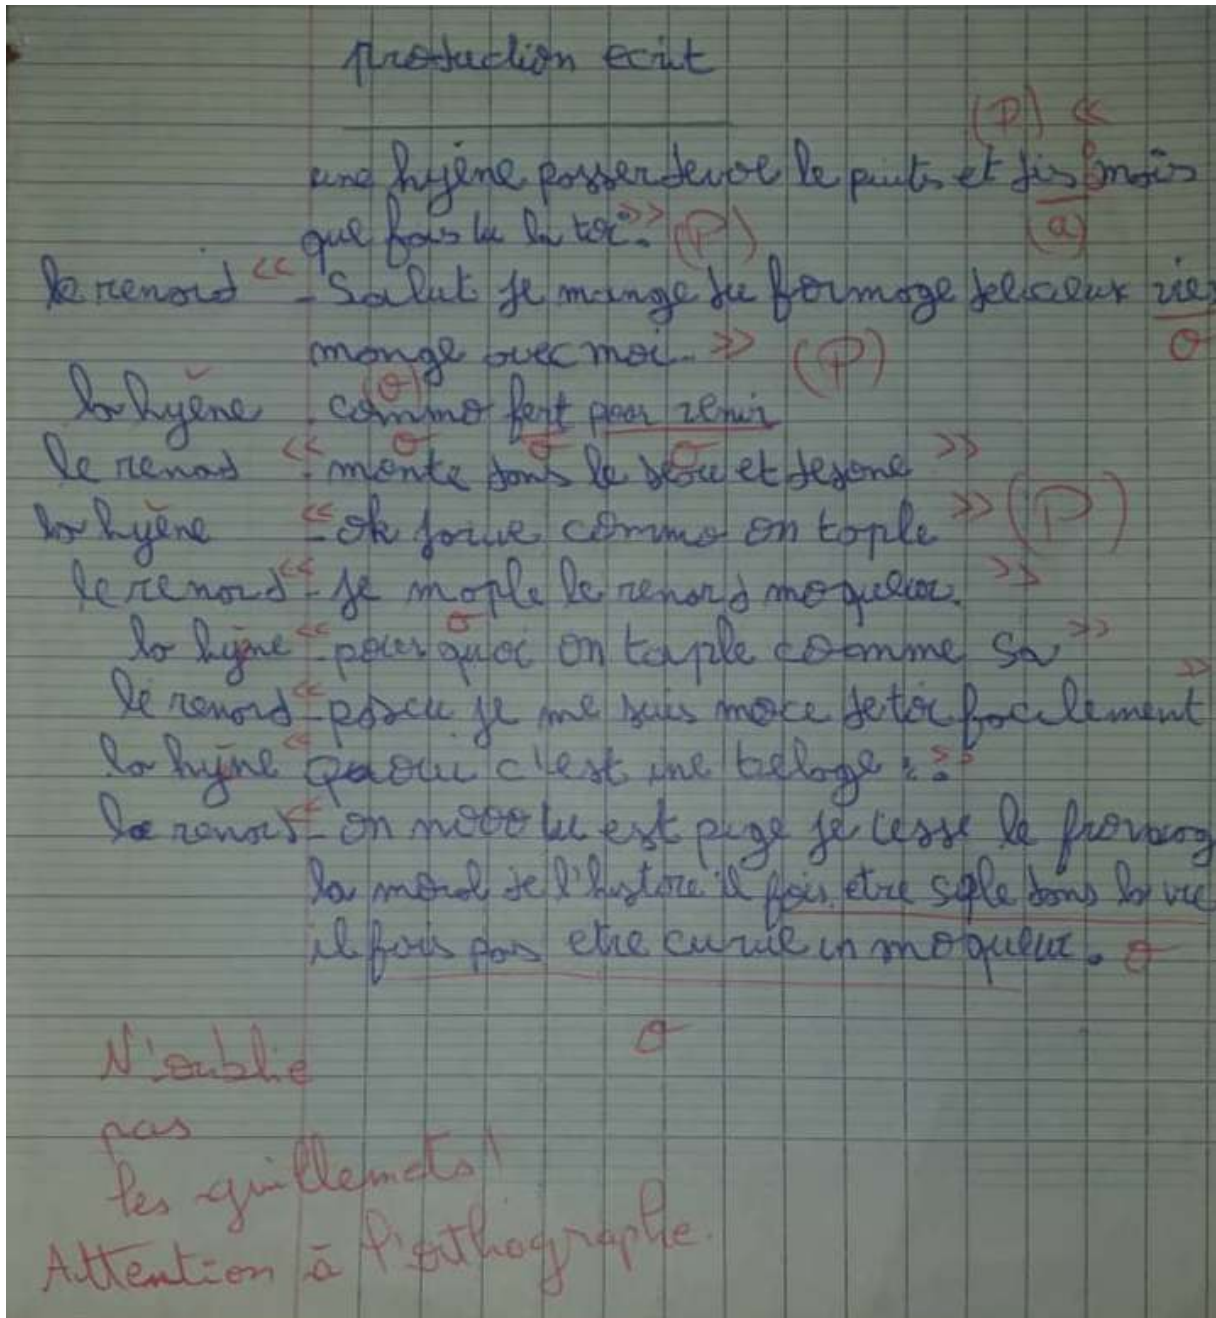 production ecrit
(P) «
une hyène posser devoe le puits et dis mais
que fais tu la toi. » (P) (a)
le renord « - Salut je mange du formage delicieux vie
mange avec moi. » (P) o
la hyène - commo fert pour venir (o)
o o o
le renad « - monte dans le seou et desone »
la hyène « - ok jarive commo on taple » (P)
le renard « - je maple le renard moqueur. »
o
la hyène « - pour quoi on taple comme sa »
le renard « - pascu je me suis moce de toi facilement »
la hyène « quoiu c'est une belage : . »
le renard « - on nooo tu est pige je lesse le fromag
la moral de l'histore il fois etre sople dans la vie
il fois pas etre curue un moqueur. o
o
N'oublie
pas
les guillemets !
Attention à l'orthographe.